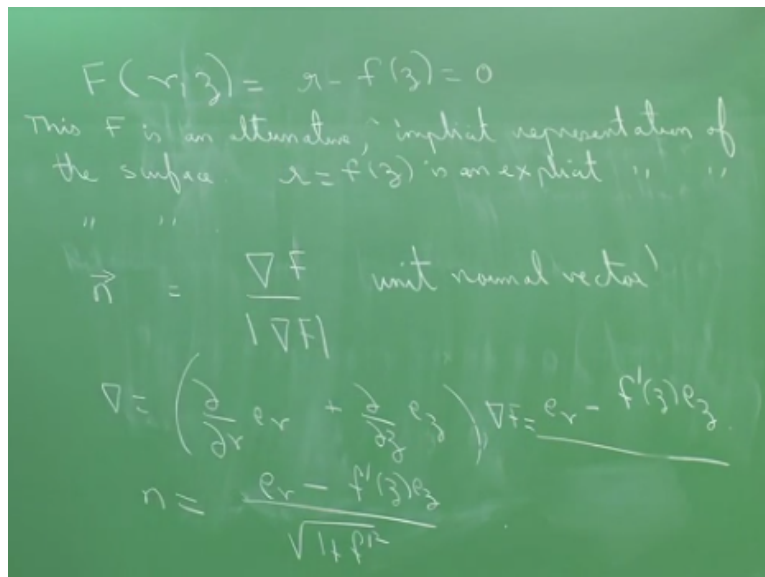 F(r, z) = r - f(z) = 0
This F is an alternative, implicit representation of
the surface. r = f(z) is an explicit " "
" "
n⃗ = ∇F / |∇F| unit normal vector
∇ = (∂/∂r e_r + ∂/∂z e_z), ∇F = e_r - f'(z) e_z
n = (e_r - f'(z) e_z) / √(1 + f'²)